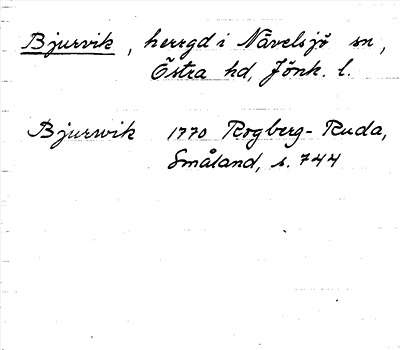 Bjurvik, herrgd i Nävelsjö sn,
Östra hd, Jönk. l.
Bjurwik 1770 Rogberg-Ruda,
Småland, s. 744